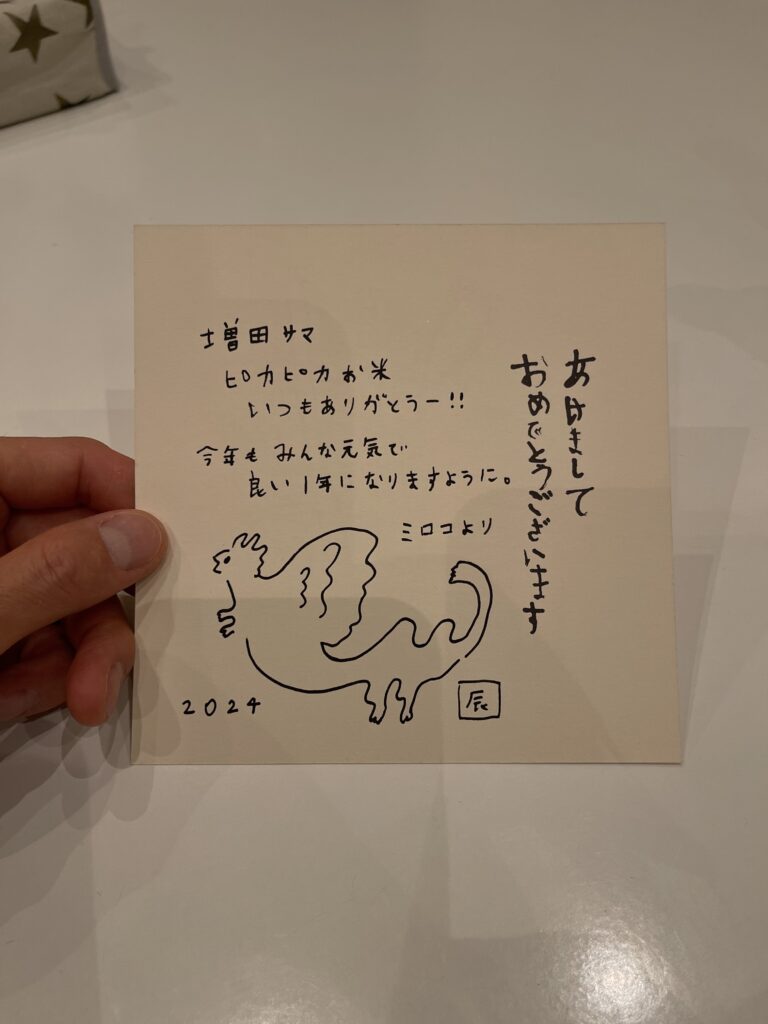 あけまして
おめでとうございます
増田サマ
ピカピカお米
いつもありがとうー!!
今年も みんな元気で
良い1年になりますように。
ミロコより
2024
辰